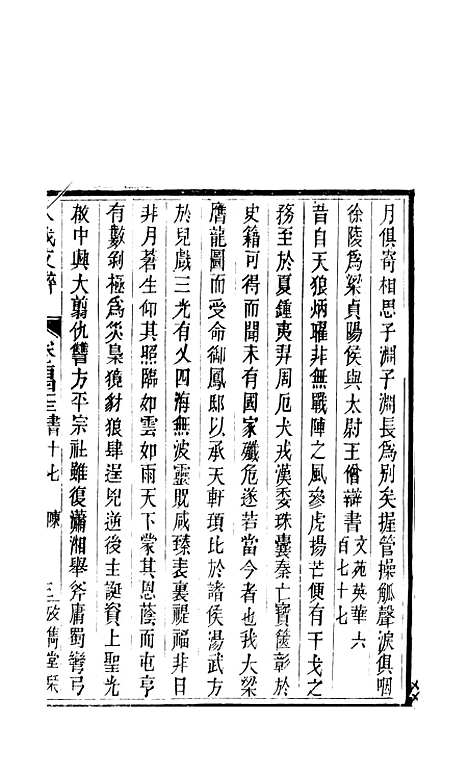 月俱寄相思子淵子淵長爲別矣握管操觚聲淚俱咽
徐陵爲梁貞陽侯與太尉王僧辯書文苑英華六百七十七
昔自天狼炳曜非無戰陣之風參虎揚芒便有干戈之
務至於夏鍾夷羿周厄犬戎漢委珠囊秦亡寶篋彰於
史籍可得而聞未有國家殲危遂若當今者也我大梁
膺龍圖而受命御鳳邸以承天軒頊比於諸侯湯武方
於兒戲三光有乂四海無波靈貺咸臻表裏禔福非日
非月蒼生仰其照臨如雲如雨天下蒙其恩蔭而屯亨
有數剝極爲災梟獍豺狼肆逞兇逆後主誕資上聖光
啟中興大翦仇讐方平宗社雖復瀟湘舉斧庸蜀彎弓
八代文粹
書十七 陳